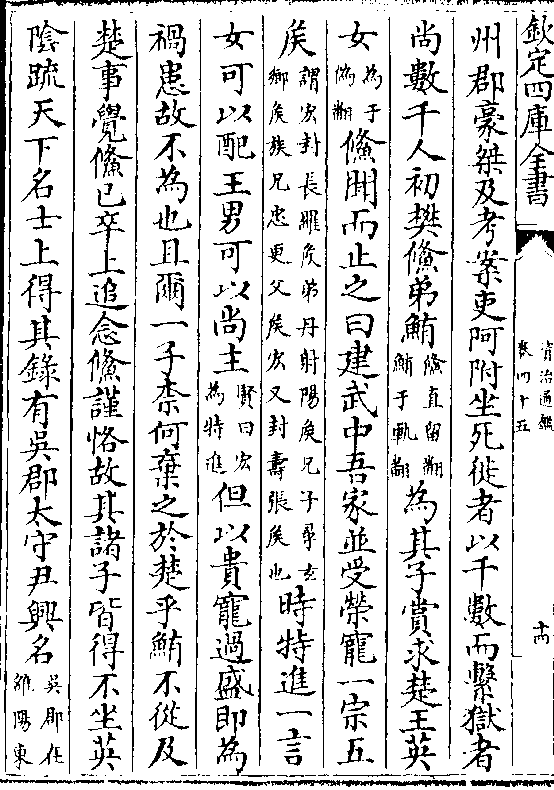 欽定四庫全書
資治通鑑
卷四十五
十四
州郡豪桀及考案吏阿附坐死徙者以千數而繫獄者
尚數千人初樊鯈弟鮪鯈直留翻鮪于軌翻為其子賞求楚王英
女為于偽翻鯈聞而止之曰建武中吾家並受榮寵一宗五
矦謂宏封長羅矦弟丹射陽矦兄子尋玄鄉矦族兄忠更父矦宏又封壽張矦也時特進一言
女可以配王男可以尚主賢曰宏為特進但以貴寵過盛即為
禍患故不為也且爾一子柰何棄之於楚乎鮪不從及
楚事覺鯈已卒上追念鯈謹恪故其諸子皆得不坐英
陰疏天下名士上得其錄有吳郡太守尹興名吳郡在雒陽東